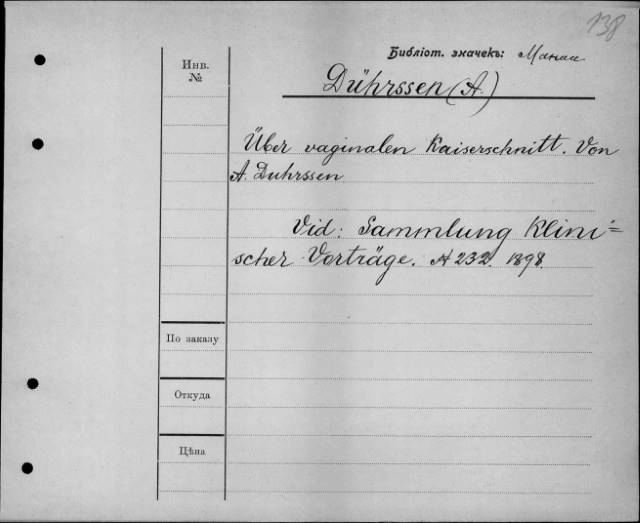 138
Библіот. значекъ:
Инв.
№
Dührssen (A.)
Über vaginalen Kaiserschnitt. Von
A. Duhrssen
Vid: Sammlung Klini=
scher Vorträge. № 232. 1898.
По заказу
Откуда
Цѣна